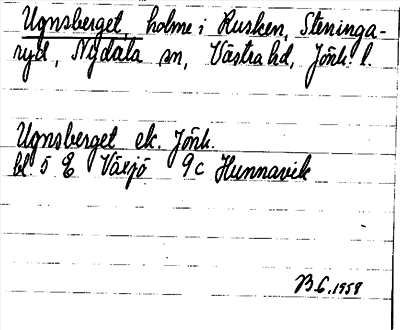 Ugnsberget, holme i Rusken, Steninga-
ryd, Nydala sn, Västra hd, Jönk. l.
Ugnsberget ek. Jönk.
bl. 5 E Växjö 9c Hunnavik
B.G. 1958